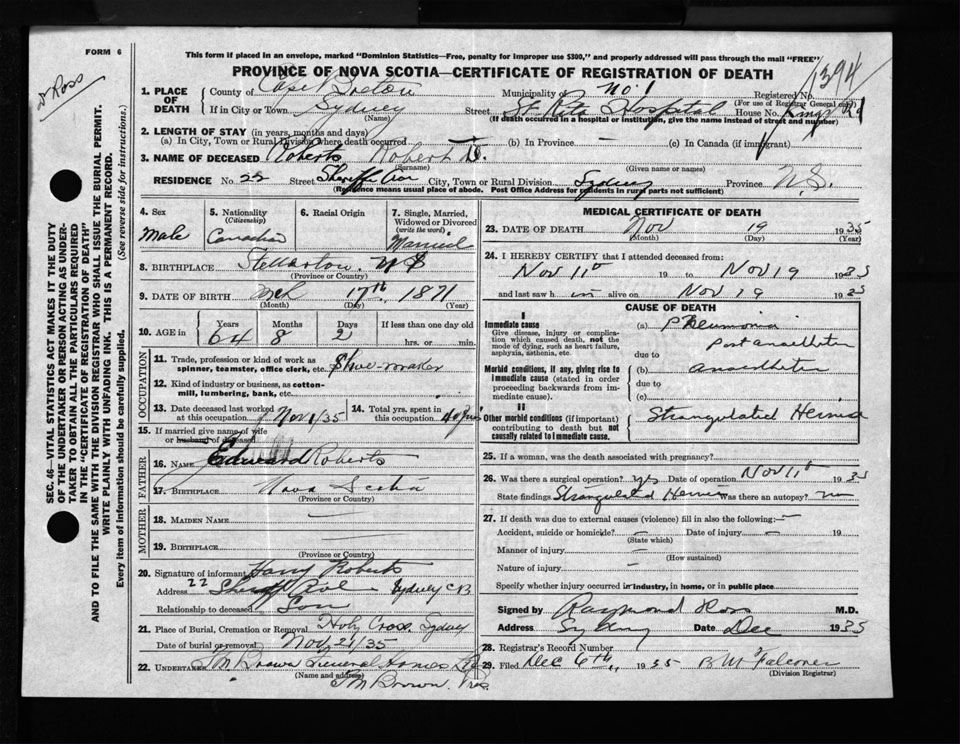 FORM 6
This form if placed in an envelope, marked "Dominion Statistics—Free, penalty for improper use $300," and properly addressed will pass through the mail "FREE"
PROVINCE OF NOVA SCOTIA—CERTIFICATE OF REGISTRATION OF DEATH
1394
Dr Ross
SEC. 46—VITAL STATISTICS ACT MAKES IT THE DUTY
OF THE UNDERTAKER OR PERSON ACTING AS UNDER-
TAKER TO OBTAIN ALL THE PARTICULARS REQUIRED
IN THE "CERTIFICATE OF REGISTRATION OF DEATH"
AND TO FILE THE SAME WITH THE DIVISION REGISTRAR WHO SHALL ISSUE THE BURIAL PERMIT.
WRITE PLAINLY WITH UNFADING INK. THIS IS A PERMANENT RECORD.
Every item of information should be carefully supplied. (See reverse side for instructions.)
1. PLACE OF DEATH
County of Cape Breton Municipality of No. 1 Registered No.
(For use of Registrar General only)
If in City or Town Sydney Street St Rita Hospital House No. Kings Rd
(Name) (If death occurred in a hospital or institution, give the name instead of street and number)
2. LENGTH OF STAY (in years, months and days)
(a) In City, Town or Rural Division where death occurred (b) In Province (c) In Canada (if immigrant)
3. NAME OF DECEASED Roberts Robert D.
(Surname) (Given names or name)
RESIDENCE No. 22 Street Sheriff Ave City, Town or Rural Division Sydney Province N.S.
(Residence means usual place of abode. Post Office Address for residents in rural parts not sufficient)
4. Sex 5. Nationality 6. Racial Origin 7. Single, Married,
(Citizenship) Widowed or Divorced
(write the word)
Male Canadian Married
8. BIRTHPLACE Stellarton N S
(Province or Country)
9. DATE OF BIRTH Mch 17th 1871
(Month) (Day) (Year)
10. AGE in Years Months Days If less than one day old
64 8 2 hrs. or min.
OCCUPATION
11. Trade, profession or kind of work as
spinner, teamster, office clerk, etc. Shoe-maker
12. Kind of industry or business, as cotton-
mill, lumbering, bank, etc.
13. Date deceased last worked at this occupation Nov 1/35 14. Total yrs. spent in this occupation 40 yrs
15. If married give name of wife
or husband of deceased
FATHER
16. NAME Edward Roberts
17. BIRTHPLACE Nova Scotia
(Province or Country)
MOTHER
18. MAIDEN NAME
19. BIRTHPLACE
(Province or Country)
20. Signature of informant Harry Roberts
Address 22 Sheriff Ave Sydney C.B.
Relationship to deceased Son
21. Place of Burial, Cremation or Removal Holy Cross, Sydney
Date of burial or removal Nov 21/35
22. UNDERTAKER T M Brown Funeral Homes
(Name and address)
T M Brown, Pres.
MEDICAL CERTIFICATE OF DEATH
23. DATE OF DEATH Nov 19 1935
(Month) (Day) (Year)
24. I HEREBY CERTIFY that I attended deceased from:
Nov 11th 19 to Nov 19 1935
and last saw h im alive on Nov 19 1935
CAUSE OF DEATH
I
Immediate cause (a) Pneumonia
Give disease, injury or complica-
tion which caused death, not the
mode of dying, such as heart failure,
asphyxia, asthenia, etc.
post anaesthetic
due to
Morbid conditions, if any, giving rise to
immediate cause (stated in order
proceeding backwards from im-
mediate cause).
(b) anaesthetic
due to
(c)
II
Other morbid conditions (if important)
contributing to death but not
causally related to immediate cause.
Strangulated Hernia
25. If a woman, was the death associated with pregnancy?
26. Was there a surgical operation? yes Date of operation Nov 11th 1935
State findings Strangulated Hernia Was there an autopsy? no
27. If death was due to external causes (violence) fill in also the following:—
Accident, suicide or homicide? Date of injury 19
(State which)
Manner of injury
(How sustained)
Nature of injury
Specify whether injury occurred in industry, in home, or in public place
Signed by Raymond Ross M.D.
Address Sydney Date Dec 1935
28. Registrar's Record Number
29. Filed Dec 6th, 1935 B M Falconer
(Division Registrar)